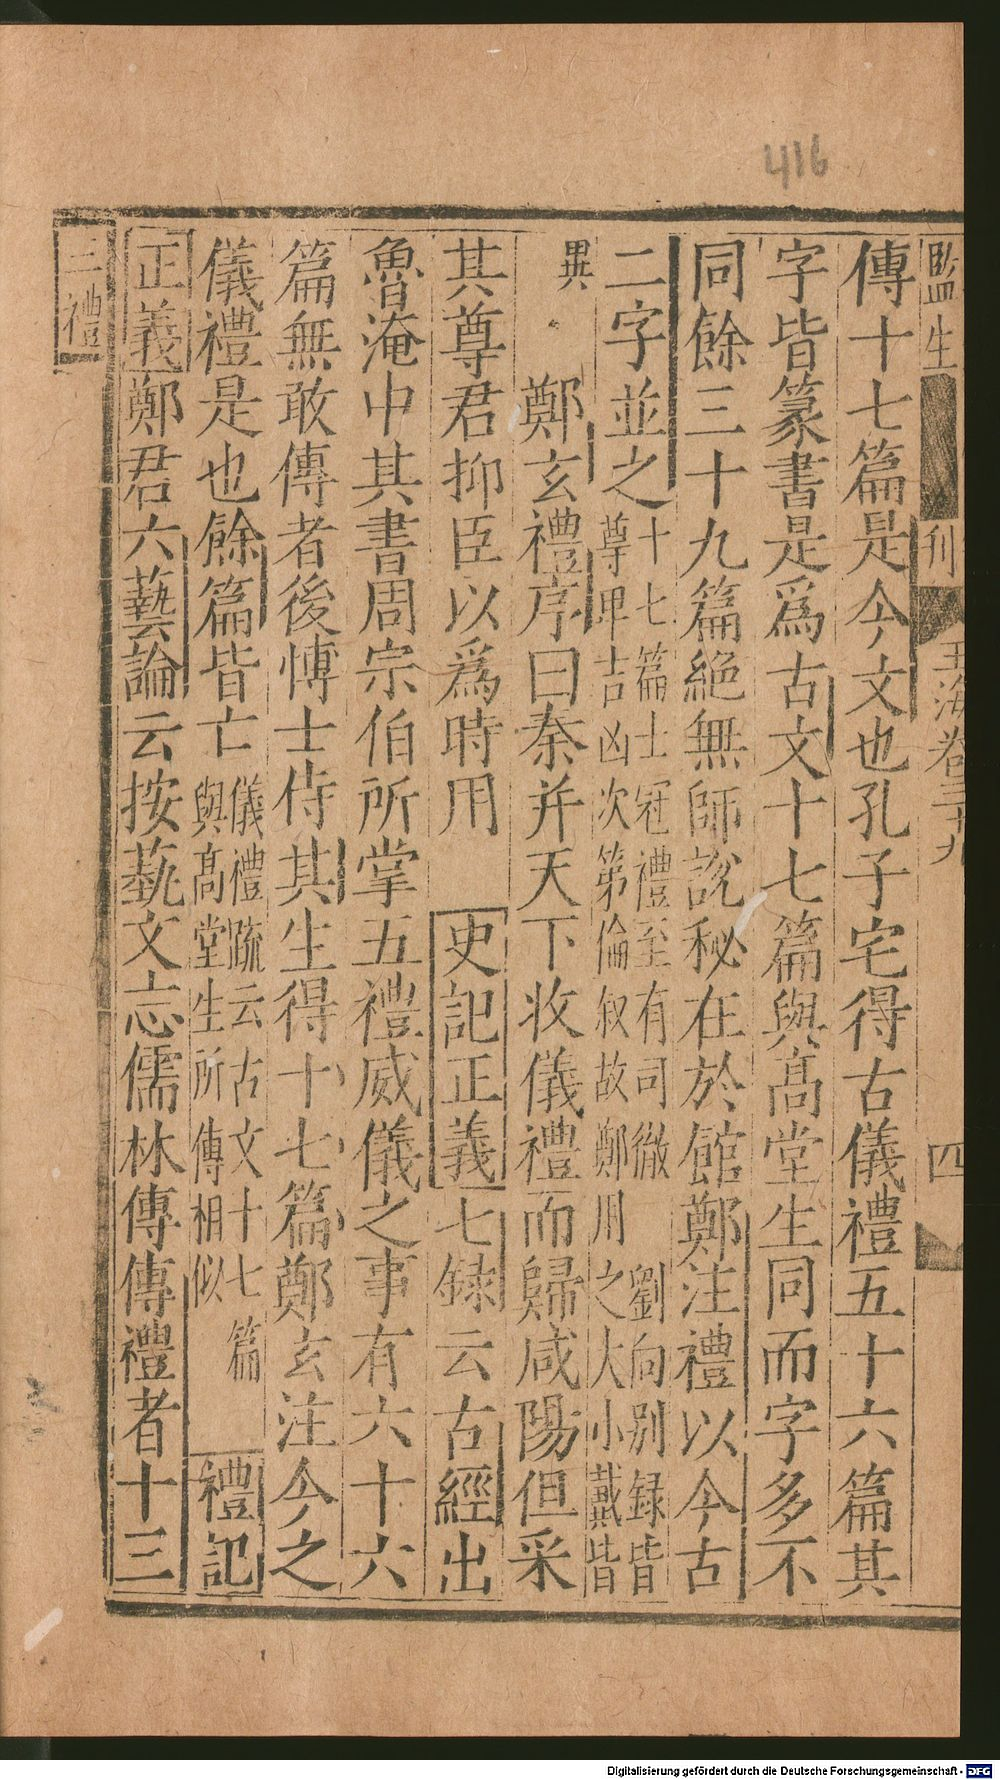 416
監生 刊 玉海卷三十九 四
傳十七篇是今文也孔子宅得古儀禮五十六篇其
字皆篆書是爲古文十七篇與髙堂生同而字多不
同餘三十九篇絕無師說秘在於館鄭注禮以今古
二字並之十七篇士冠禮至有司徹劉向别録皆
尊卑吉凶次第倫叙故鄭用之大小戴皆
異 鄭玄禮序曰秦并天下收儀禮而歸咸陽但采
其尊君抑臣以爲時用 史記正義七録云古經出
魯淹中其書周宗伯所掌五禮威儀之事有六十六
篇無敢傳者後愽士侍其生得十七篇鄭玄注今之
儀禮是也餘篇皆亡儀禮疏云古文十七篇
與髙堂生所傳相似 禮記
正義鄭君六藝論云按蓺文志儒林傳傳禮者十三
三禮
Digitalisierung gefördert durch die Deutsche Forschungsgemeinschaft - DFG